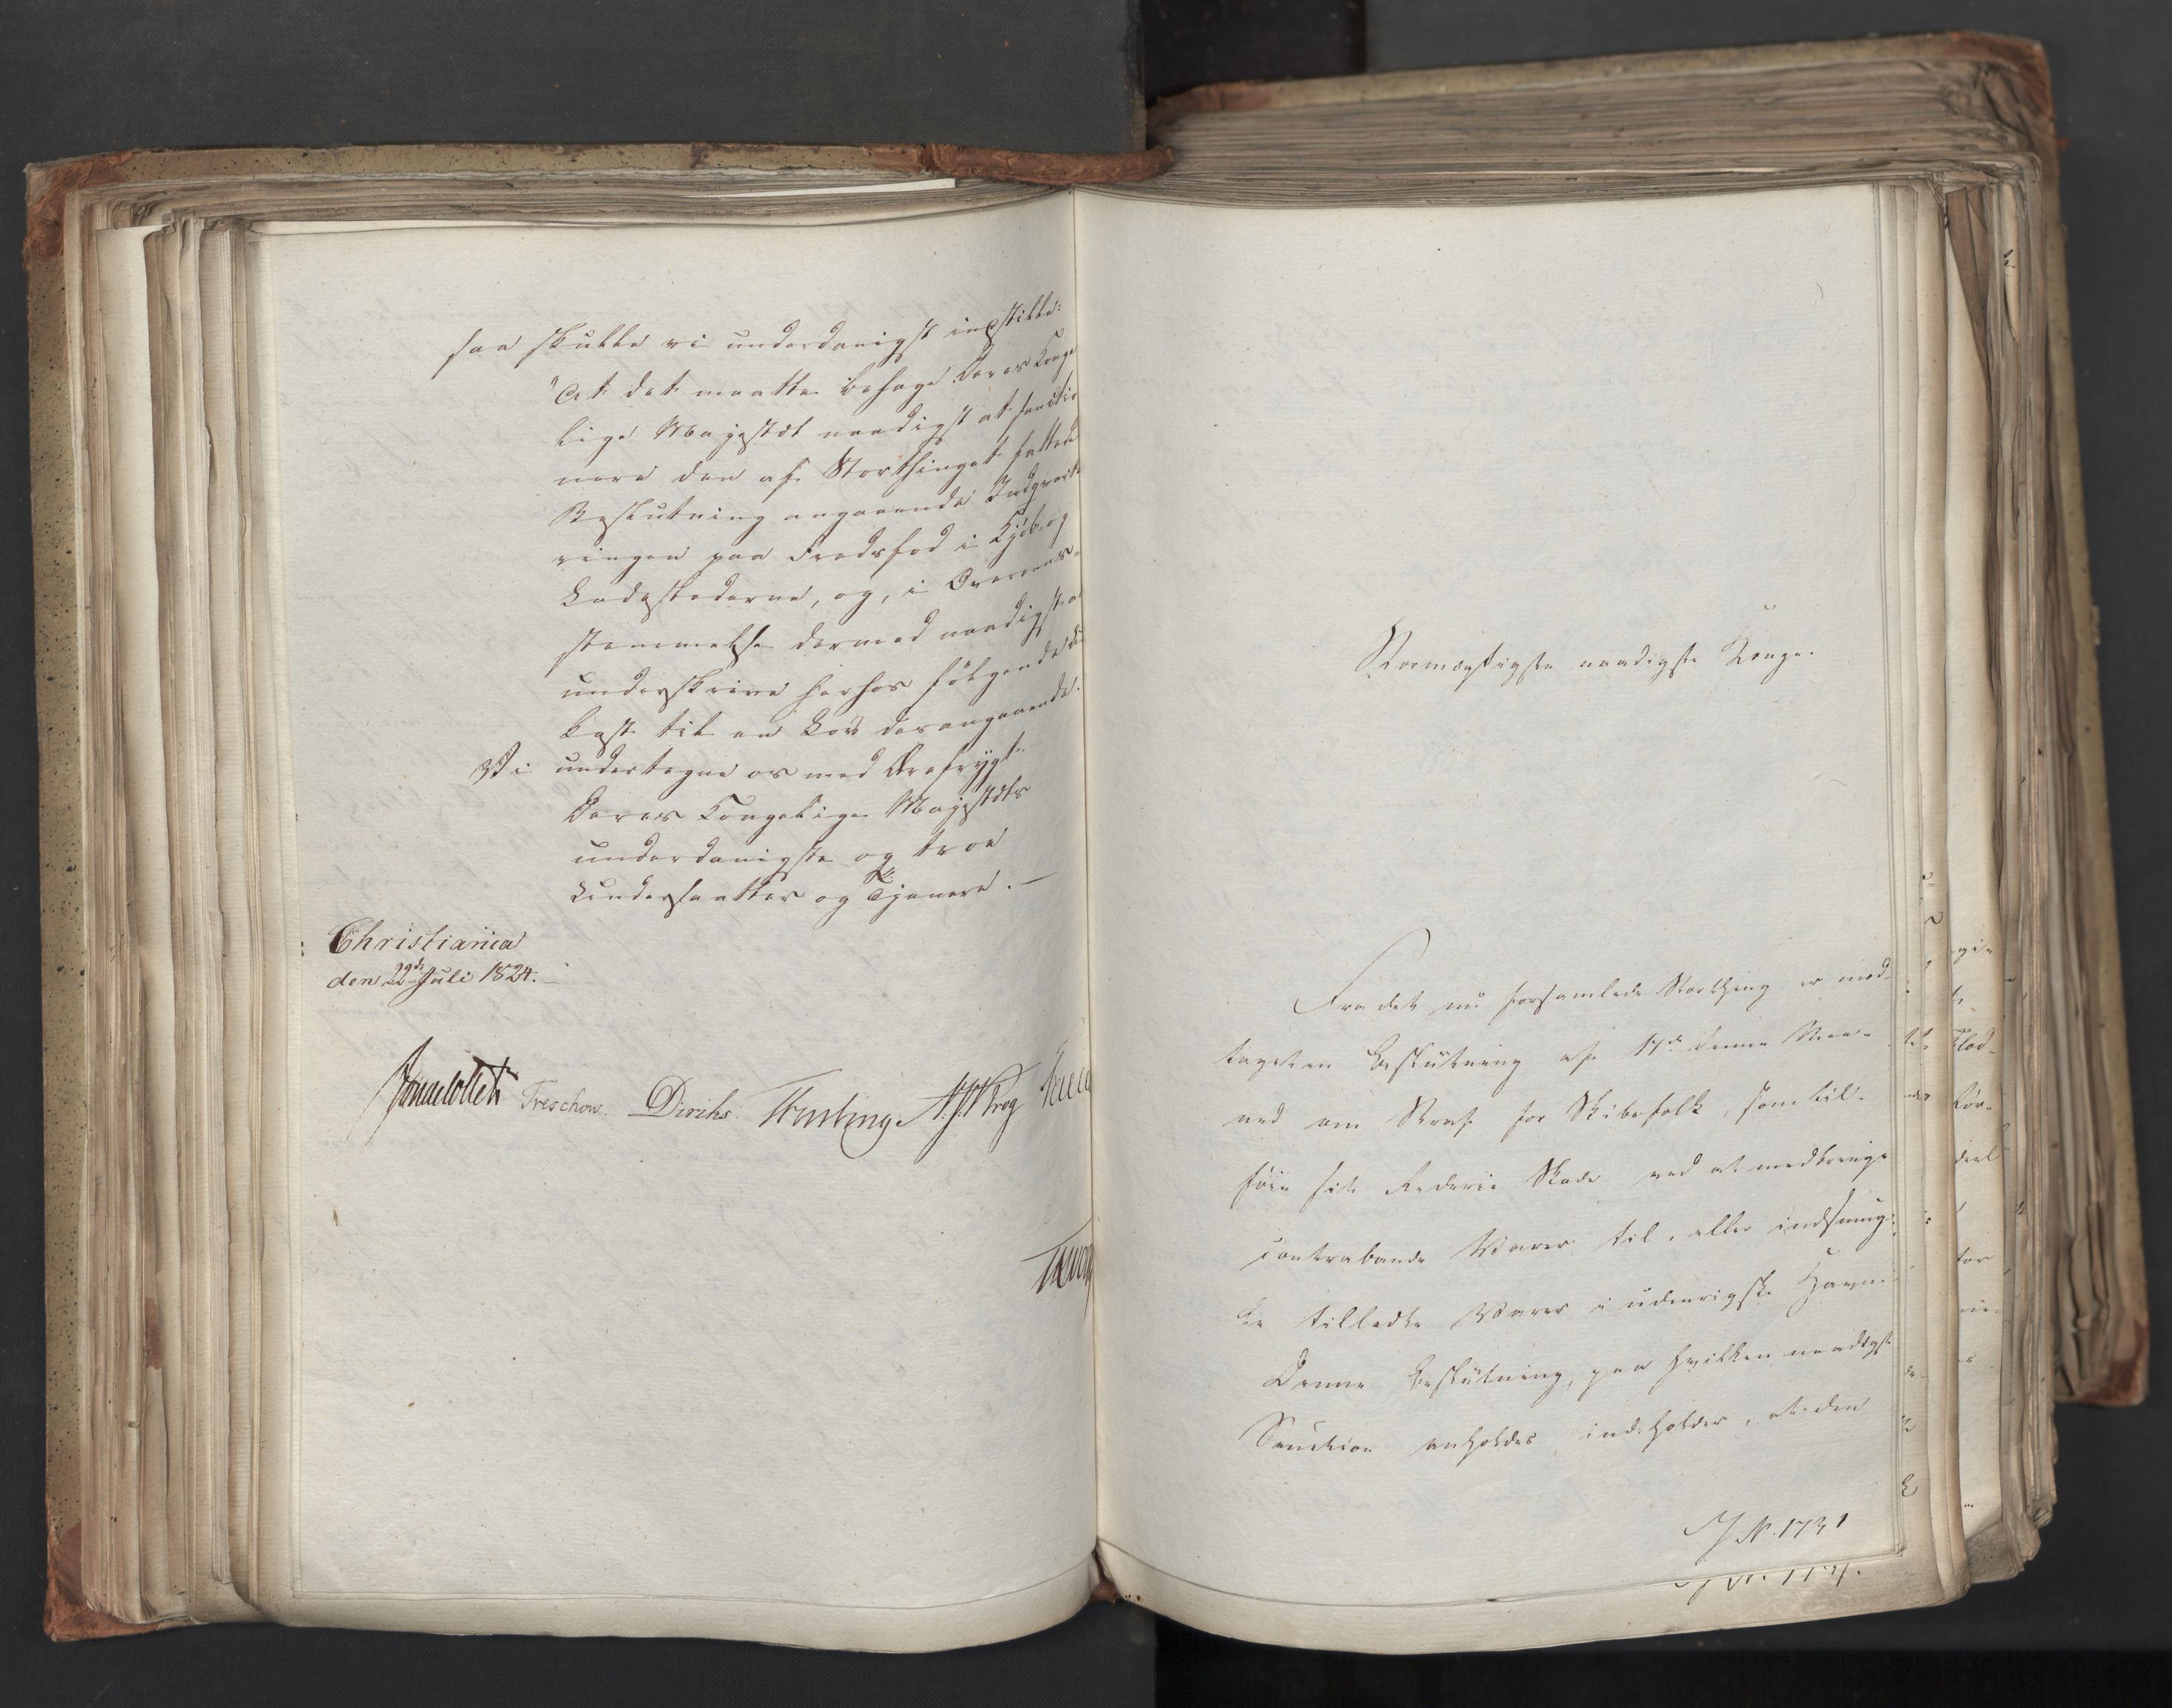 saa skulle vi underdanigst indstille:
"At det maatte behage Deres Konge
lige Majestæt naadigst at sanctio
nere den af Storthinget fattede
Beslutning angaaende Indqvarte
ringen paa Fredsfod i Kjøb- og
Ladestederne, og, i Overeens-
stemmelse dermed naadigst at
underskrive herhos følgende Ud
kast til en Lov derangaaende.
Vi undertegne os med Ærefrygt
Deres Kongelige Majestæts
underdanigste og troe
Undersaatter og Tjenere. —
Christiania
den 22de Juli 1824.
Treschow. Diriks.
Stormægtigste naadigste Konge.
Fra det nu forsamlede Storthing er mod-
taget en Beslutning af 17de denne Maa-
ned om Straf for Skibsfolk, som til-
føie sit Rederie Skade ved at medbringe
contrabande Varer til, eller indsmug-
le tilladte Varer i udenrigske Havne.
Denne Beslutning, paa hvilken naadigst
Sanction anholdes, indeholder, at den
J N. 1731